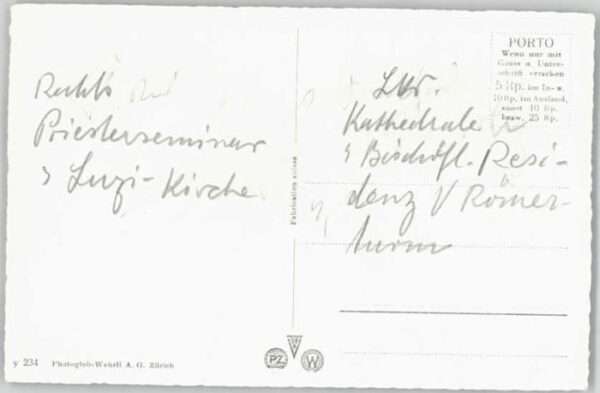 Rechts
Priesterseminar
& Luzi-Kirche
Lks.
Kathedrale
& Bischöfl. Resi-
denz V Römer-
turm
PORTO
Wenn nur mit
Gruss u. Unter-
schrift versehen
5 Rp. im In- u.
10 Rp. im Ausland,
sonst 10 Rp.
bezw. 25 Rp.
Fabrication suisse
y 234 Photoglob-Wehrli A. G. Zürich
PZ W